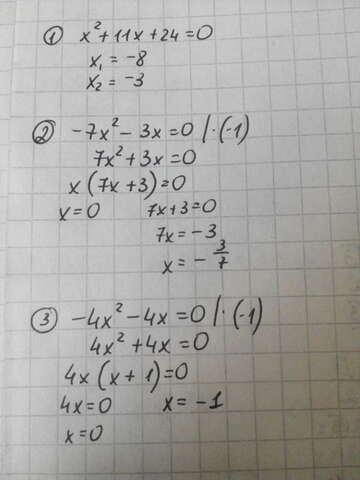 ① x² + 11x + 24 = 0
x₁ = -8
x₂ = -3
② -7x² - 3x = 0 | · (-1)
7x² + 3x = 0
x (7x + 3) = 0
x = 0 7x + 3 = 0
7x = -3
x = - 3/7
③ -4x² - 4x = 0 | · (-1)
4x² + 4x = 0
4x (x + 1) = 0
4x = 0 x = -1
x = 0